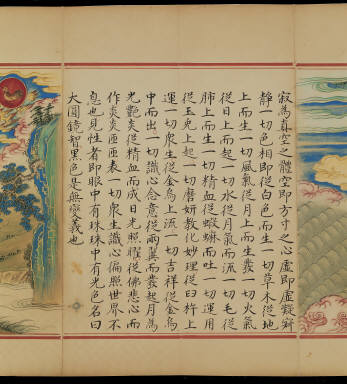 寂為真空之體空即方寸之心虛即虛凝寂
靜一切色相即從白色而生一切草木從地
上而生一切風氣從月上而生發一切火氣
從日上而起一切水從月氣而流一切毛從
肺上而生一切精血從蝦蟆而吐一切運用
從玉兔上起一切磨妍教化妙理從臼杵上
運一切眾生從金烏上流一切吉祥從金烏
中而出一切識心合意從兩翼而發起月為
光艷炎從精血而成日光照耀從佛悲心而
作炎炎匝匝表一切眾生識心徧照世界不
息也見性者即眼中有珠珠中有光色名曰
大圓鏡智黑色是無變義也